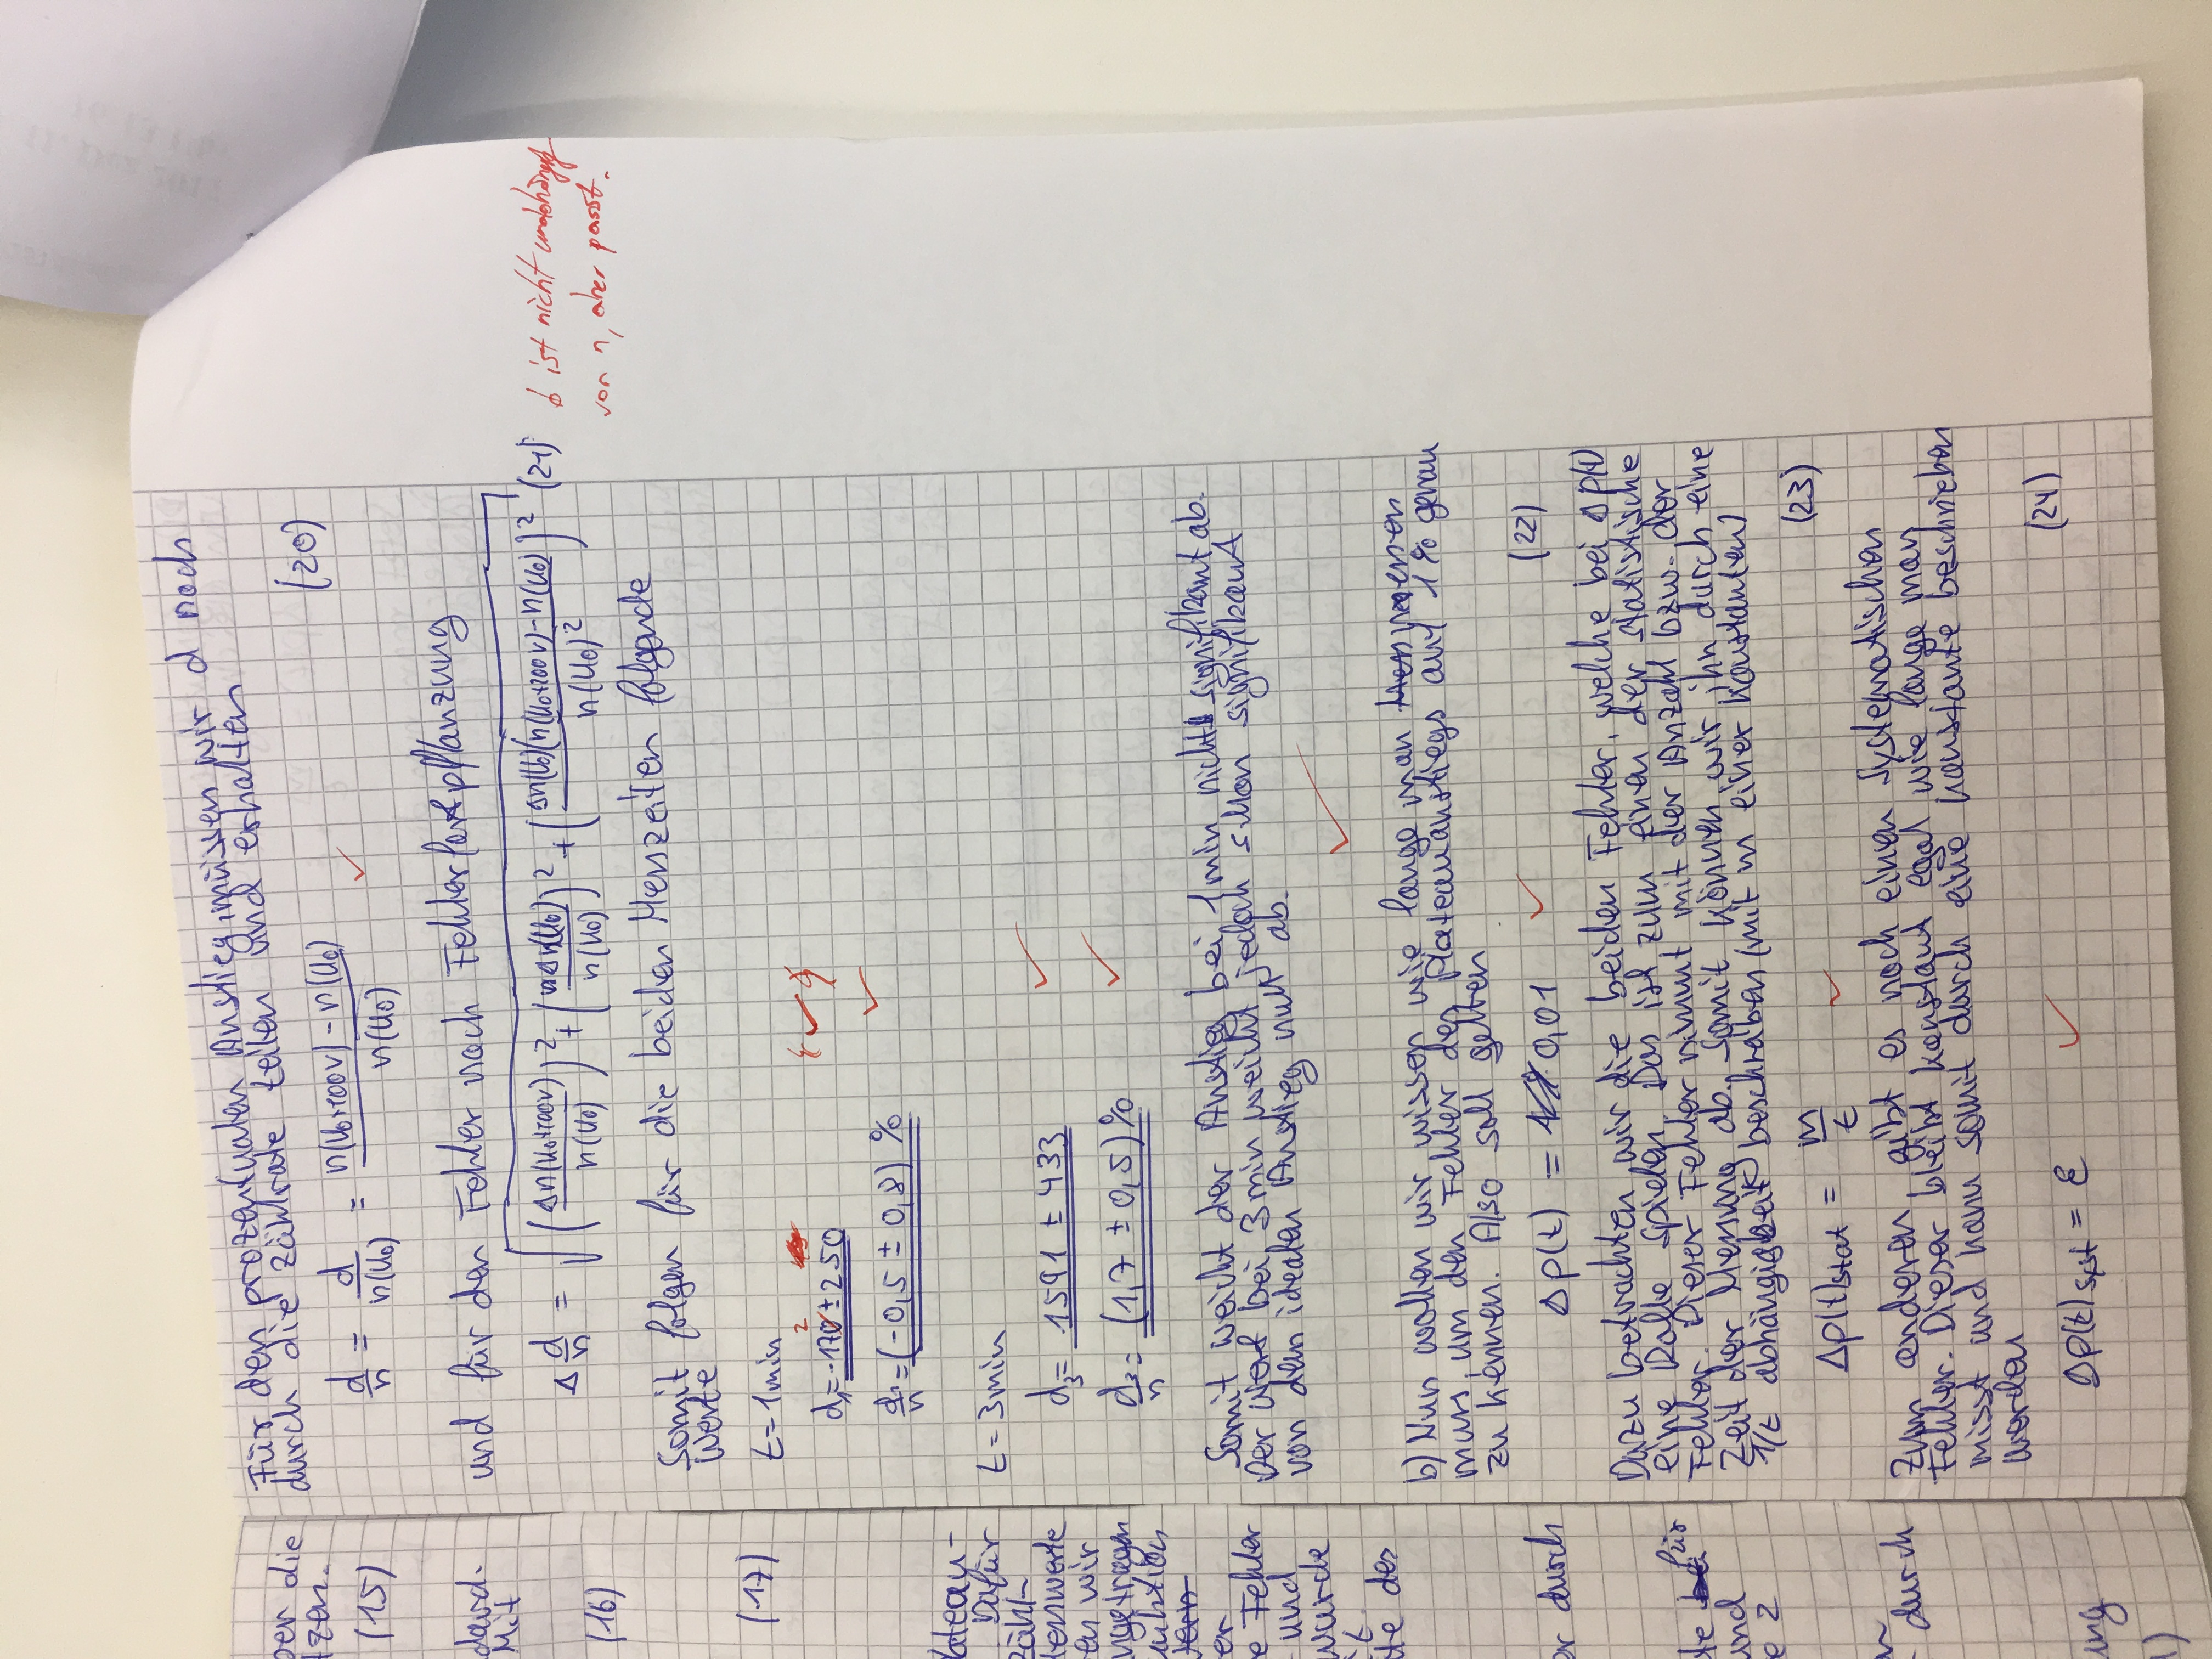 ber die
tzen.
(15)
dard.
Mit
(16)
(17)
ateau-
Dafür
zähl-
tenwerte
en wir
ngetragen
unktion
tern
er
e Fehler
und
wurde
it
ite des
er durch
te bei für
und
e 2
durch
ung
Für den prozentualen Anstieg, müssen wir d noch
durch die Zählrate teilen und erhalten
d/n = d/n(U₀) = (n(U₀+100V) - n(U₀))/n(U₀) ✓ (20)
und für den Fehler nach Fehlerfortpflanzung
Δ d/n = √((Δn(U₀+100V)/n(U₀))² + (Δn(U₀)/n(U₀))² + (Δn(U₀)(n(U₀+100V)-n(U₀))/n(U₀)²)²) (21)
ist nicht unabhängig
von n, aber passt.
Somit folgen für die beiden Messzeiten folgende
Werte
t = 1min
2
d₁ = -170 ± 250 (✓)
d₁/n = (-0,5 ± 0,8) % ✓
t = 3min
d₃ = 1591 ± 433 ✓
d₃/n = (1,7 ± 0,5)% ✓
Somit weicht der Anstieg bei 1min nicht signifikant ab.
Der Wert bei 3min weicht jedoch schon signifikant
von dem idealen Anstieg null ab.
✓
b) Nun wollen wir wissen wie lange man messen
muss, um den Fehler des Plateauanstiegs auf 1% genau
zu kennen. Also soll gelten
Δp(t) = 0,01 ✓ (22)
Dazu betrachten wir die beiden Fehler, welche bei Δp(t)
eine Rolle spielen. Das ist zum einen der statistische
Fehler. Dieser Fehler nimmt mit der Anzahl bzw. der
Zeit der Messung ab. Somit können wir ihn durch eine
1/t abhängigkeit beschreiben (mit m einer Konstanten)
Δp(t)stat = m/t ✓ (23)
Zum anderen, gibt es noch einen systematischen
Fehler. Dieser bleibt konstant egal wie lange man
misst und kann somit durch eine konstante beschrieben
werden
Δp(t)syst = ε ✓ (24)